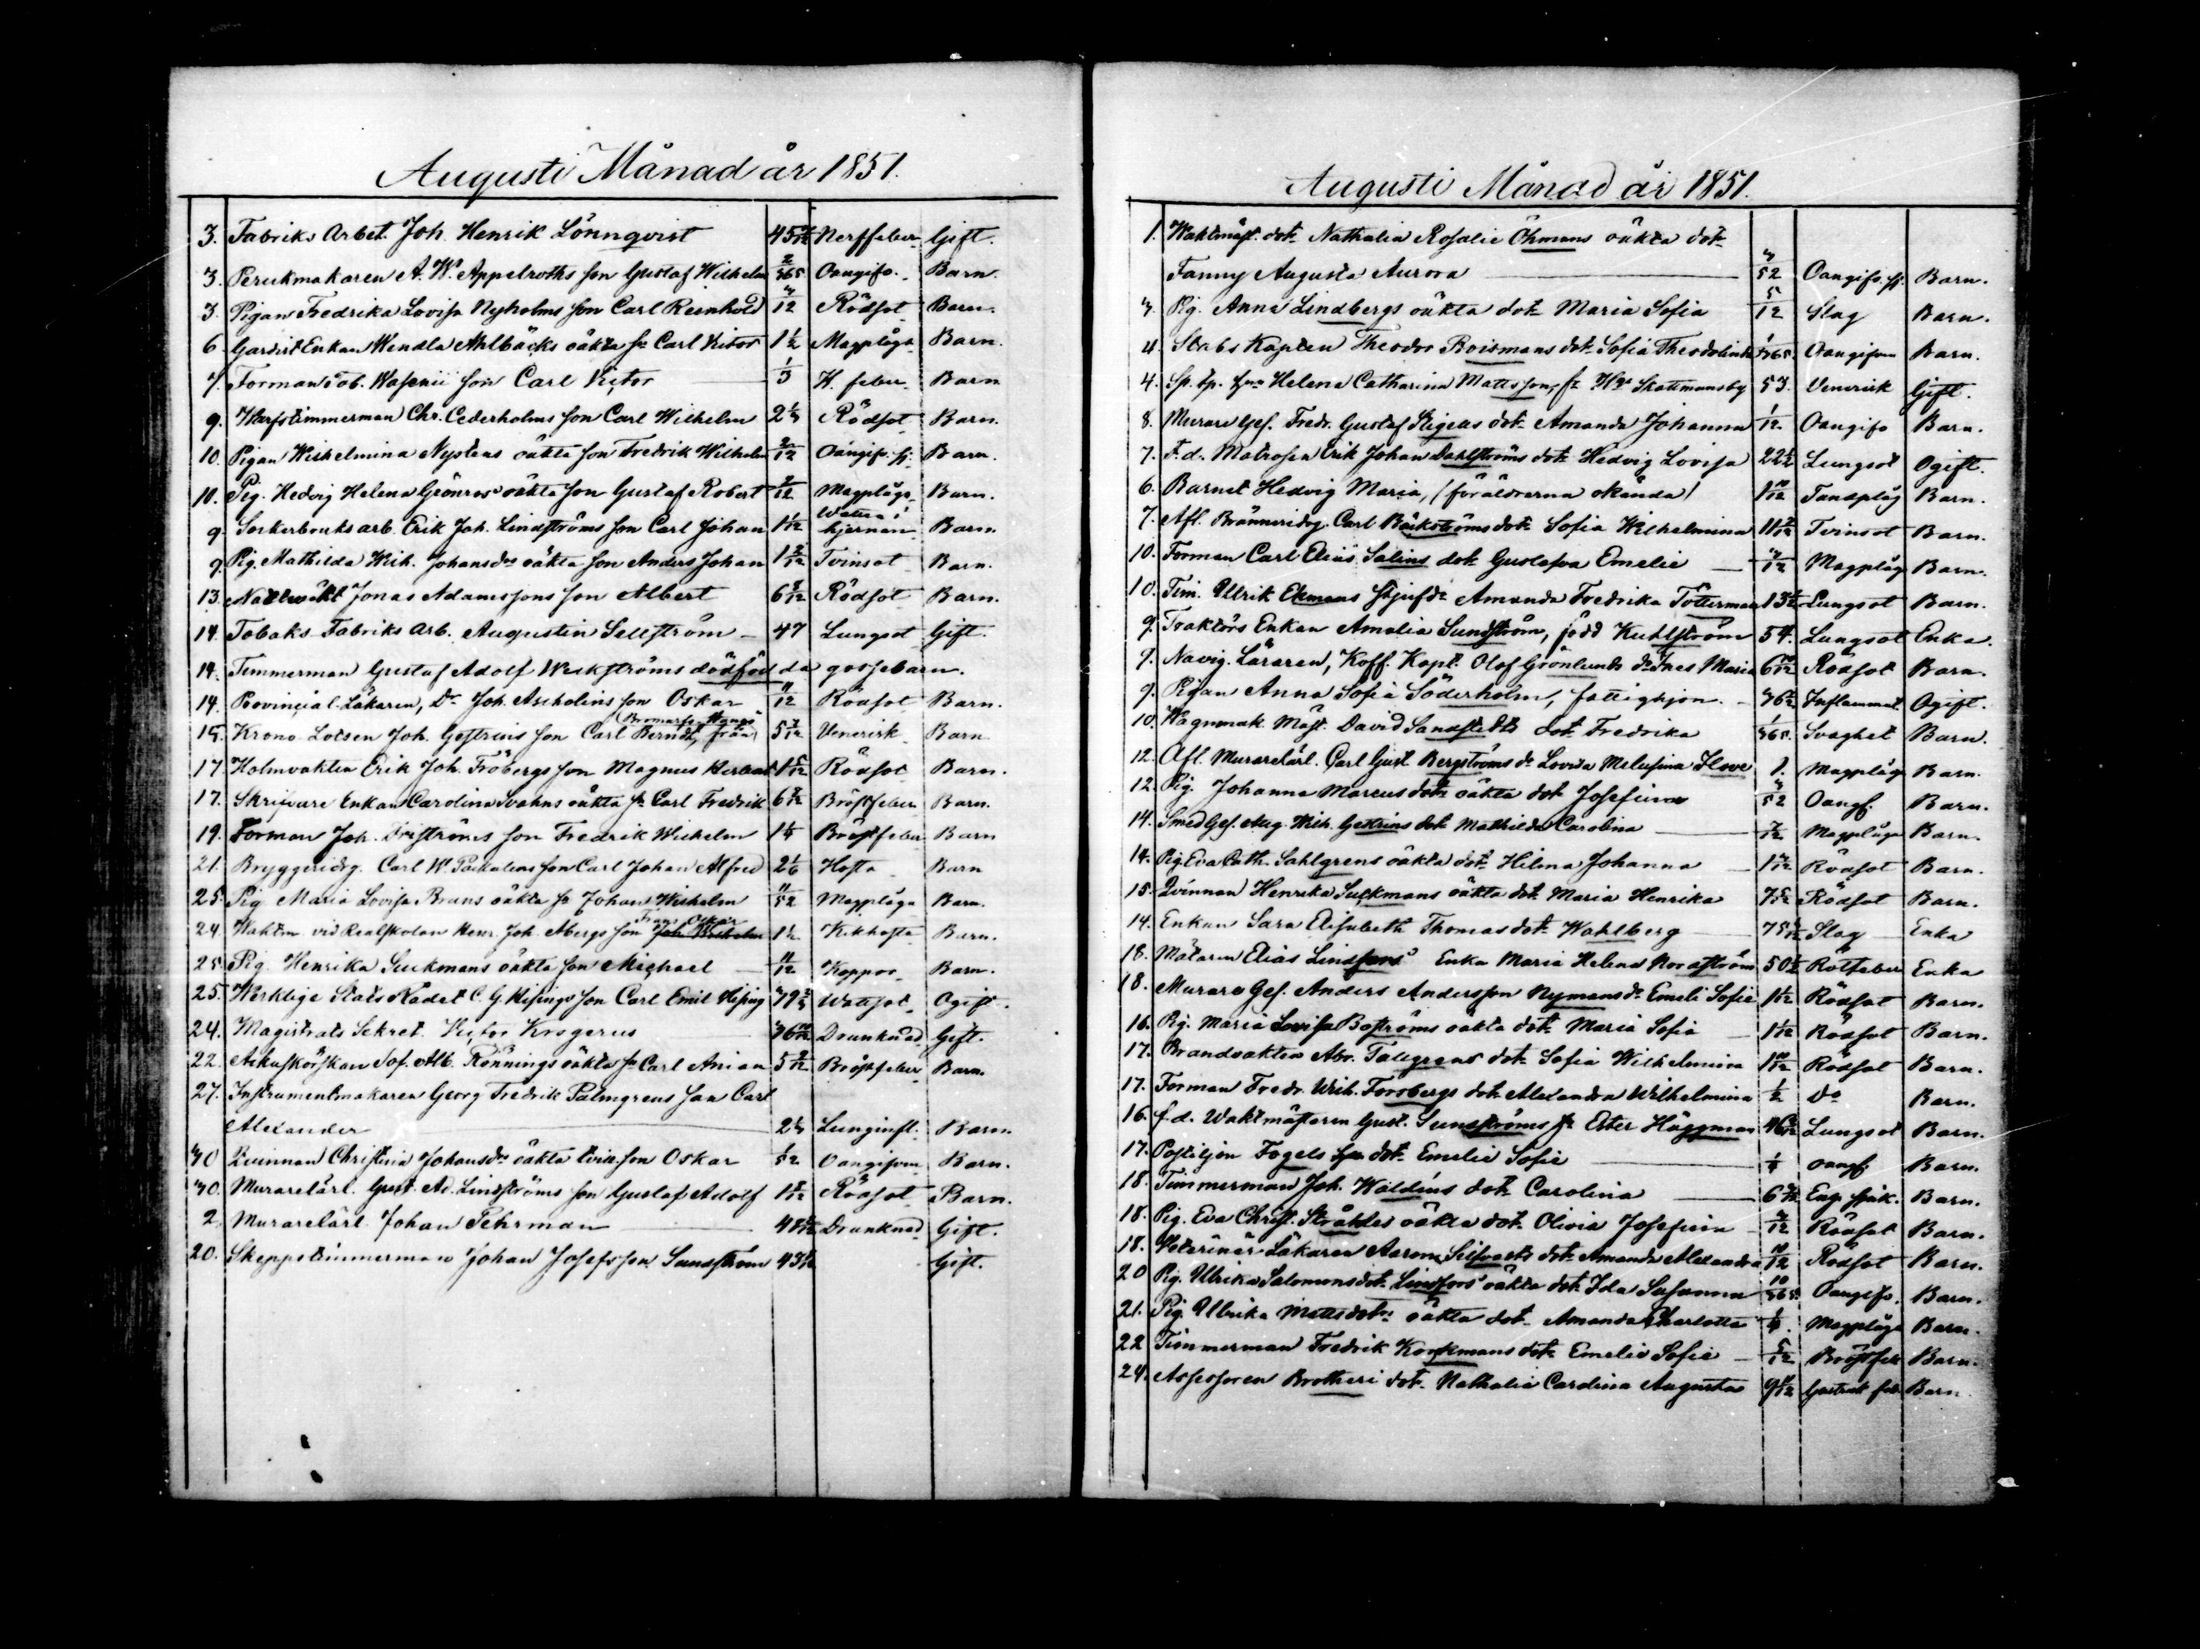 Augusti Månad år 1851.
3. Fabriks Arbet. Joh. Henrik Lönnqvist 45 Nerffeber Gift.
3. Perukmakaren A. W. Appelroths son Gustaf Wilhelm 2/365 Oangifv. Barn.
3. Pigan Fredrika Lovisa Nyholms son Carl Reinhold 3/12 Rödsot Barn.
6. Gardist Enkan Wendla Ahlbäcks oäkta sn Carl Victor 1 1/2 Magplåga Barn.
7. Forman Jab. Wasenii son Carl Victor 1/3 H. feber Barn
9. Warfstimmerman Chr. Cederholms son Carl Wilhelm 2 1/3 Rödsot Barn.
10. Pigan Wilhelmina Nystens oäkta son Fredrik Wilhelm 2/12 Oangifv. Barn.
10. Pig. Hedvig Helena Grönros' oäkta son Gustaf Robert 2/12 Magplåga Barn.
9. Sockerbruks arb. Erik Joh. Lindströms son Carl Johan 1 1/12 Watten i hjernan Barn.
9. Pig. Mathilda Wilh. Johansdrs oäkta son Anders Johan 1 2/12 Tvinsot Barn.
13. Jonas Adamssons son Albert 6 Rödsot Barn.
14. Tobaks Fabriks arb. Augustin Sellström 47 Lungsot Gift.
14. Timmerman Gustaf Adolf Weckströms dödfödda gossebarn.
14. Provincial Läkaren, Dr Joh. Ascholins son Oskar 11/12 Rödsot Barn.
(Bromarf, Hangö
15. Krono Lotsen Joh. Gestrins son Carl Berndt, från) 5 Venerisk Barn
17. Holmvakten Erik Joh. Fröbergs son Magnus Herbert 1 5/12 Rödsot Barn.
17. Skrifvare Enkan Carolina Svahns oäkta sn Carl Fredrik 6 Bröstfeber Barn.
19. Forman Joh. Friströms son Fredrik Wilhelm 1 1/4 Bröstfeber Barn
21. Bryggeridrg. Carl W. son Carl Johan Alfred 2 1/6 Hosta Barn
25. Pig. Maria Lovisa Bruns oäkta sn Johan Wilhelm 11/52 Magplåga Barn.
Frans Oskar
24. Waktm. vid Realskolan Henr. Joh. Abergs son Joh. Wilhelm 1 1/2 Kikhosta Barn.
25. Pig. Henrika Suckmans oäkta son Michael 11/12 Koppor Barn.
25. Werklige Stats Rådet C. G. Hisings son Carl Emil Hising 19 Wattsot Ogift.
24. Magistrats Sekret. Victor Krogerus 36 10/12 Drunknad Gift.
22. Sof. Alb. Rönnings oäkta sn Carl Anian 5 2/12 Bröstfeber Barn.
27. Instrumentmakaren Georg Fredrik Palmgrens son Carl
Alexander 2 1/3 Lunginfl. Barn.
30 Qvinnan Christina Johansdrs oäkta tvill. son Oskar /52 Oangifven Barn.
30. Murarelärl. Gust. Ad. Lindströms son Gustaf Adolf 1 Rödsot Barn.
2. Murarelärl. Johan Fehrman 48 Drunknad Gift.
20. Skeppstimmerman Johan Josefsson Sundström 43 Gift.
Augusti Månad år 1851.
1. Waktmäst. dotr Nathalia Rosalie Öhmans oäkta dotr
Fanny Augusta Aurora 3/52 Oangifv. sj. Barn.
3. Pig. Anna Lindbergs oäkta dotr Maria Sofia 5/12 Slag Barn.
4. Stabs Kapten Theodor Boismans dotr Sofia Theodolinda 1/365 Oangifven Barn.
4. Helena Catharina Mattsson, fr. Skattmansby 53. Venerisk Gift.
8. Murare Ges. Fredr. Gustaf Stigells dotr Amanda Johanna 1/12 Oangifv. Barn.
7. F.d. Matrosen Erik Johan Dahlströms dotr Hedvig Lovisa 22 Lungsot Ogift.
6. Barnet Hedvig Maria, (föräldrarna okända) 1 10/12 Tandplåg Barn.
7. Afl. Brännridrg. Carl Bäckströms dotr Sofia Wilhelmina 11 Tvinsot Barn.
10. Forman Carl Elias Salins dotr Gustafva Emelie /12 Magplåg Barn.
10. Tim. Ullrik Ekmans stjufdr Amanda Fredrika Tötterman 13 Lungsot Barn.
9. Traktörs Enkan Amalia Sundström, född Kuhlström 54. Lungsot Enka.
9. Navig. Läraren, Koff. Kapt. Olof Grönlunds dr Ines Maria 6 10/12 Rödsot Barn.
9. Pigan Anna Sofia Söderholm, fattighjon 36 Inflammat. Ogift.
10. Wagnmak. Mäst. David Sandstedts dotr Fredrika 1/365. Svaghet Barn.
12. Afl. Murarelärl. Carl Gust. Bergströms dr Lovisa Melusina 1. Magplåg Barn.
12. Pig. Johanna Marcusdotrs oäkta dotr Josefina 3/52 Oangf. Barn.
14. Smed Ges. Aug. Wilh. Gestrins dotr Mathilda Carolina 7/12 Magplåga Barn.
14. Pig. Eva Cath. Sahlgrens oäkta dotr Hilma Johanna 1 Rödsot Barn.
15. Qvinnan Henrika Suckmans oäkta dotr Maria Henrika 7 5/12 Rödsot Barn.
14. Enkan Sara Elisabeth Thomasdotr Wahlberg 75 Slag Enka
18. Målaren Elias Lindfors' Enka Maria Helena Nordström 50 1/2 Rötfeber Enka
18. Murare Ges. Anders Andersson Nymans dr Emeli Sofie 1 1/12 Rödsot Barn.
16. Pig. Maria Lovisa Boströms oäkta dotr Maria Sofia 1 1/12 Rödsot Barn.
17. Brandvakten Abr. Tallgrens dotr Sofia Wilhelmina 1 10/12 Rödsot Barn.
17. Forman Fredr. Wilh. Forsbergs dotr Alexandra Wilhelmina 1/2 Do Barn.
16. f.d. Waktmästaren Gust. Sundströms fr Ester Häggman 46 Lungsot Barn.
17. Postiljon Fogels dotr Emelie Sofie 1/4 oangf. Barn.
18. Timmerman Joh. Waldins dotr Carolina 6 Eng. sjuk. Barn.
18. Pig. Eva Christ. Stråhles oäkta dotr Olivia Josefina /12 Rödsot Barn.
18. Veterinär Läkaren Aarons Silfvasts dotr Amanda Alexandra 10/12 Rödsot Barn.
20 Pig. Ulrika Salomonsdotr Lindfors' oäkta dotr Ida Susanna 10/365. Oangifv. Barn.
21. Pig. Ulrika Mattsdotrs oäkta dotr Amanda Charlotta 1/4. Magplåga Barn.
22 Timmerman Fredrik Korkmans dotr Emelie Sofie 5/12 Bröstfeb Barn.
24. Assessoren Brotheri dotr Nathalia Carolina Augusta 9 Gastrisk feb Barn